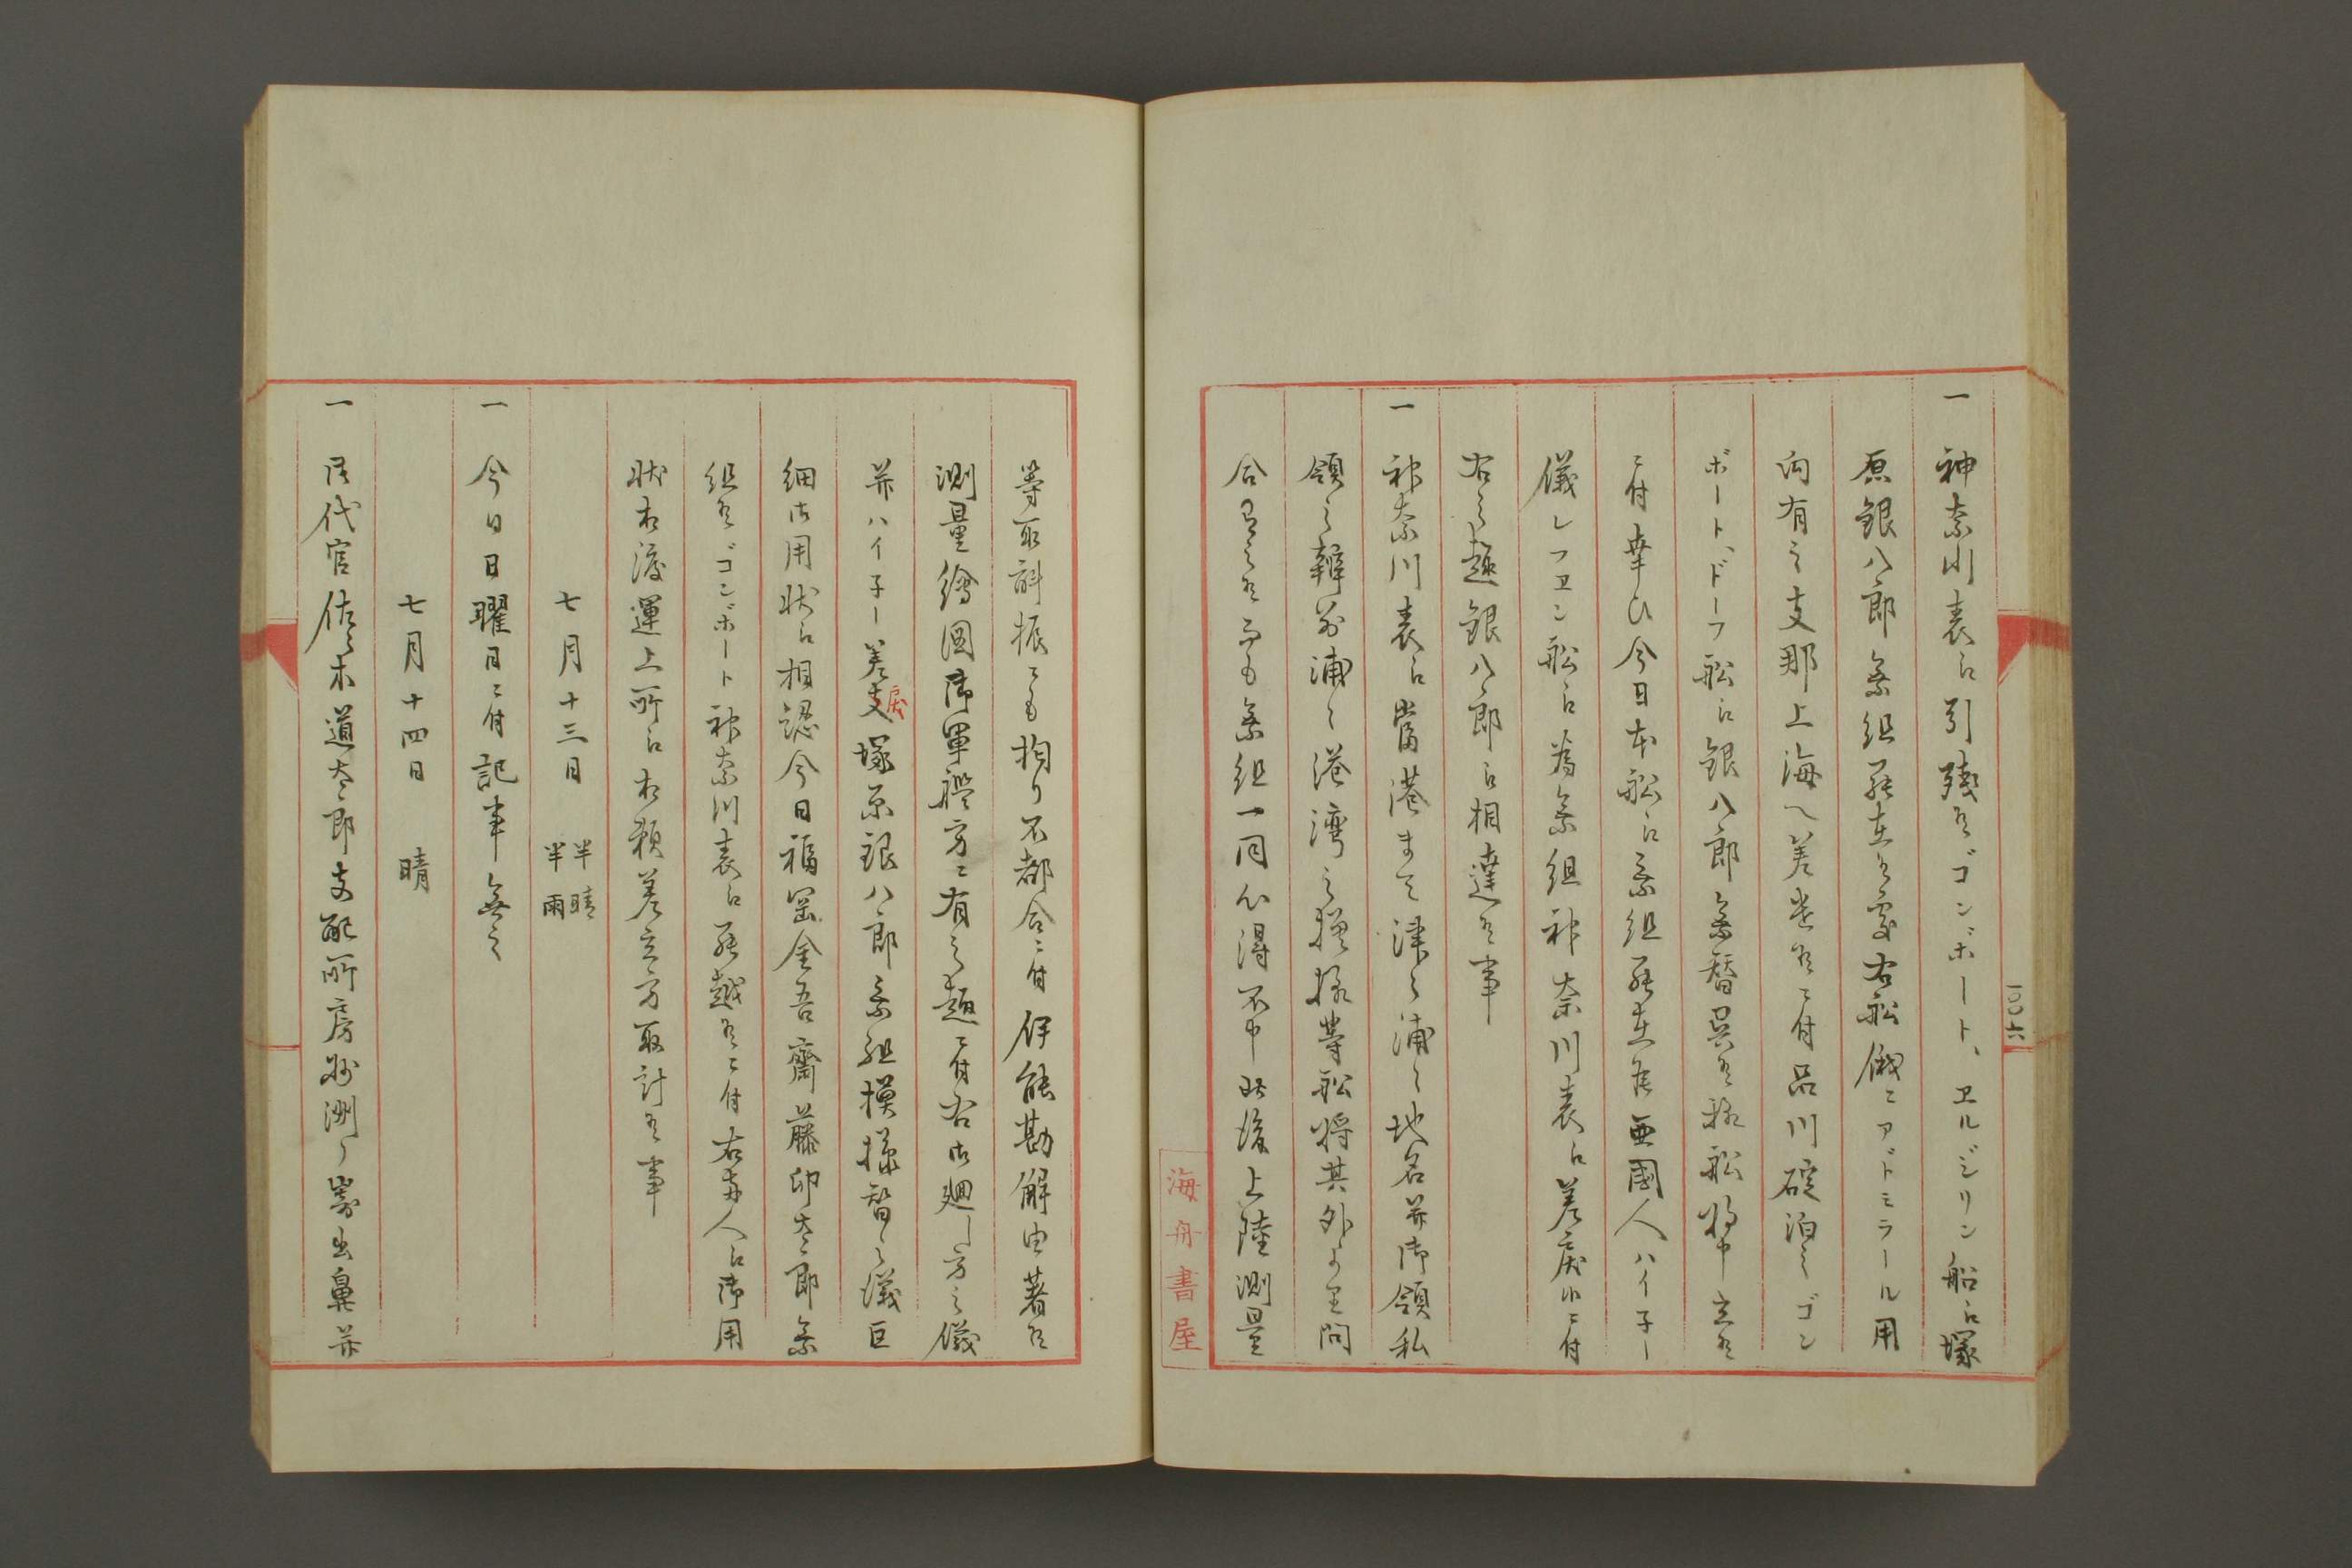 一 神奈川表ニ引残候ゴンボート、ヱルジリン船ニ塚
原銀八郎乗組罷在候處右船儀ニアドミラール用
向有之支那上海ヘ差遣候ニ付品川碇泊之ゴン
ボート、ドーフ船ニ銀八郎乗替呉候様船将申立候
ニ付幸ひ今日本船ニ乗組罷在候亜國人ハイ子ー
儀レフヱン船ニ為乗組神奈川表ニ差戻候ニ付
右之趣銀八郎ニ相達候事
一 神奈川表ニ當港まて津々浦々地名并御領私
領之辨別浦々港湾之模様等船将其外より問
合有之候而も乗組一同心得不申此後上陸測量
一〇〇六
海舟書屋
等取調振ニも拘り不都合ニ付伊能勘解由著候
測量繪圖御軍艦方ニ有之趣ニ付右御廻し方之儀
并ハイ子ー差支戻塚原銀八郎乗組摸様替之儀巨
細御用状ニ相認今日福岡金吾齋藤卯太郎乗
組候ゴンボート神奈川表ニ罷越候ニ付右両人ニ御用
状相渡運上所ニ相頼差立方取計候事
七月十三日 半晴半雨
一 今日日曜日ニ付記事無之
七月十四日 晴
一 御代官佐々木道太郎支配所房州洲ノ崎出鼻并